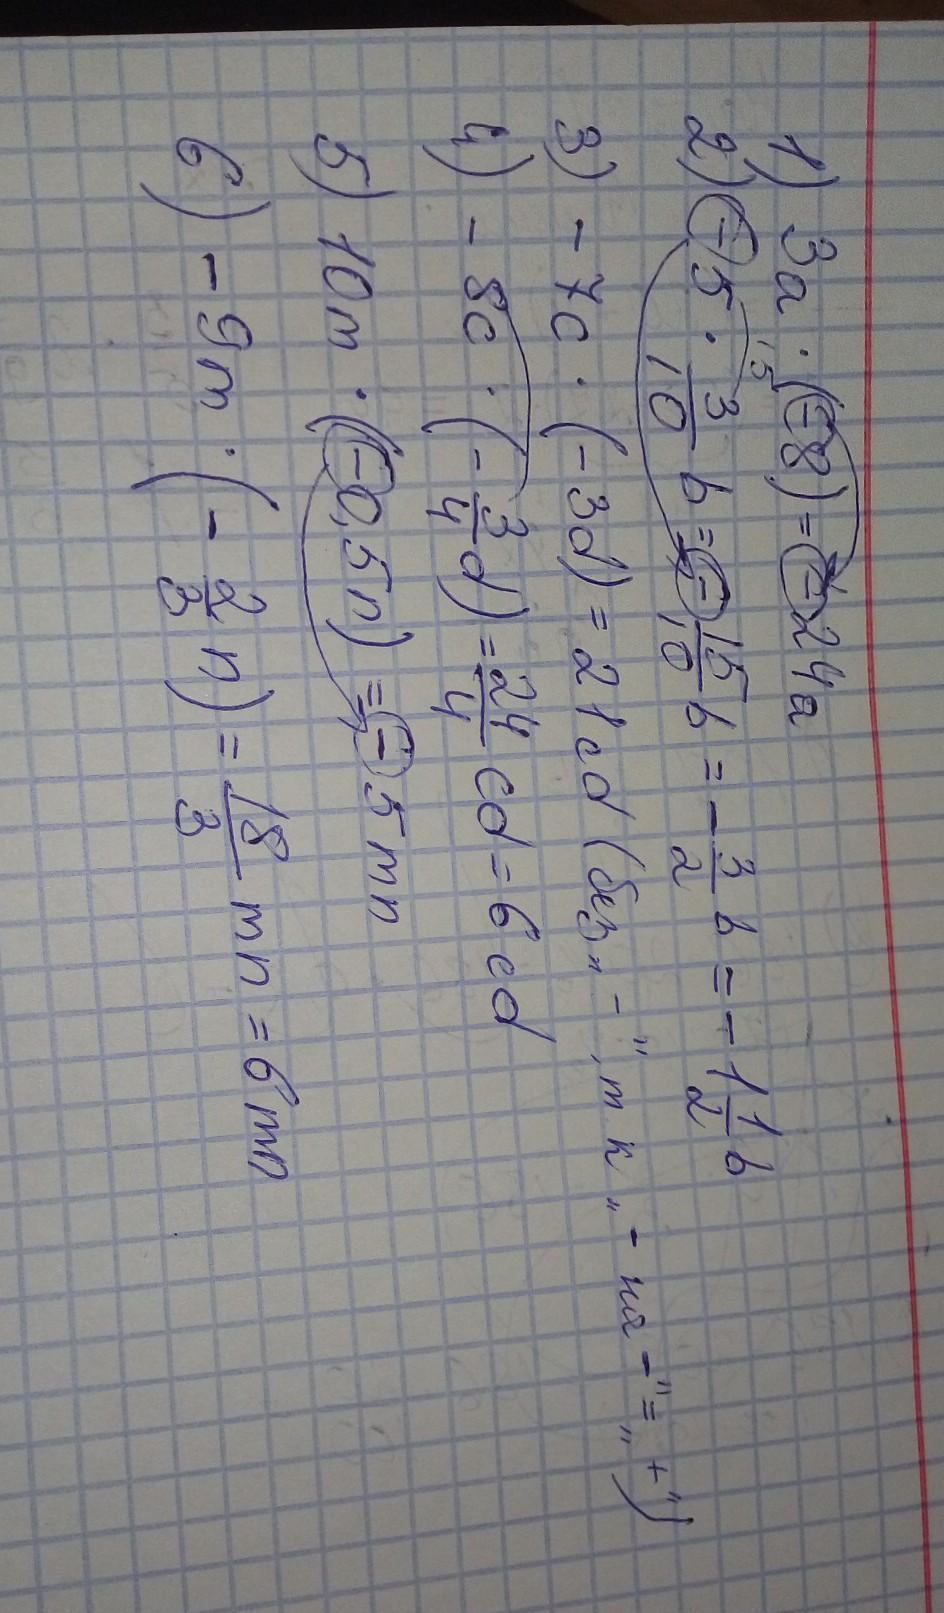 1) 3a · (-8) = -24a
15
2) -5 · 3/10 b = -15/10 b = -3/2 b = -1 1/2 b
3) -7c · (-3d) = 21cd (без „-", тк „- на -" = „+")
4) -8c · (-3/4 d) = 24/4 cd = 6cd
5) 10m · (-0,5n) = -5mn
6) -9m · (-2/3 n) = 18/3 mn = 6mn